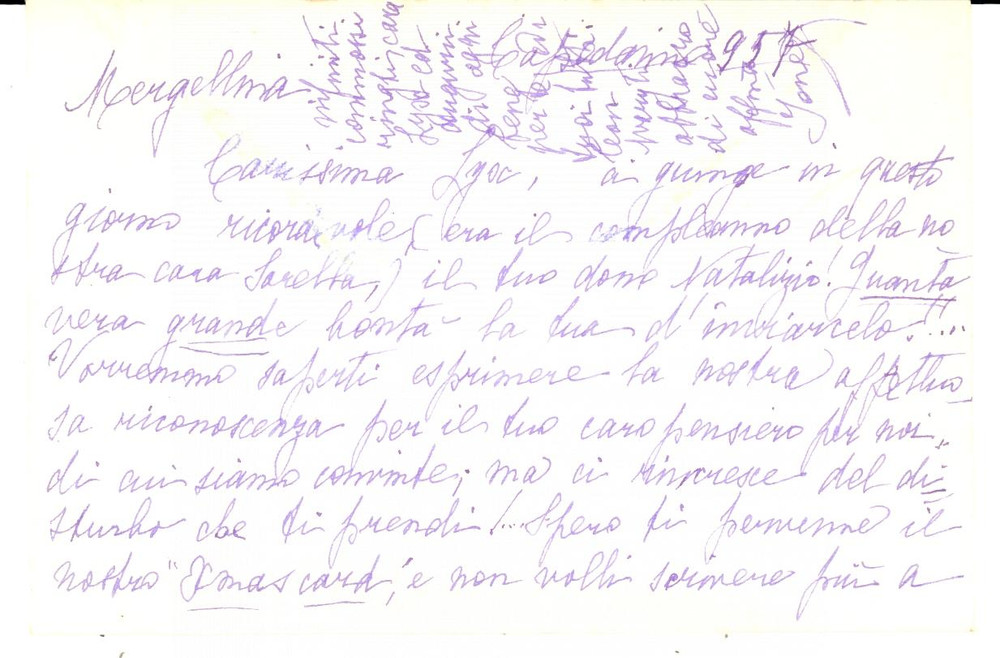 Mergellina Capodanno 957
Carissima Lya, ci giunge in questo
giorno ricordevole, (era il compleanno della no
stra cara Sorella,) il tuo dono Natalizio! Quanta
vera grande bontà la tua d'inviarcelo!!...
Vorremmo saperti esprimere la nostra affettuo_
sa riconoscenza per il tuo caro pensiero per noi..
di cui siamo convinte; ma ci rincresce del di=
sturbo che ti prendi!... Spero ti pervenne il
nostro "Xmas card", e non volli scrivere più a
infiniti
commossi
ringr, cara
Lya ed
auguri
di ogni
bene
per te
abbraccio
di cuore